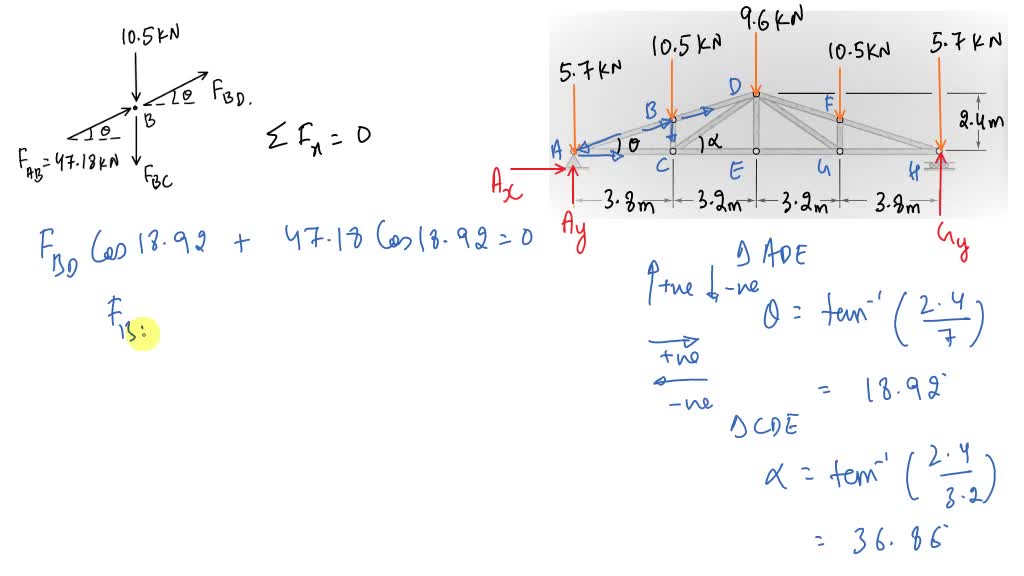 10.5kN
θ
F_BD.
B
θ
F_AB=47.18kN
F_BC
Σ F_x = 0
F_BD Cos 18.92 + 47.18 Cos 18.92 = 0
F_B:
9.6 kN
10.5 kN
10.5kN
5.7 kN
5.7 kN
D
B
F
2.4m
A
θ
α
C
E
G
H
A_x
3.8m
3.2m
3.2m
3.8m
A_y
G_y
Δ ADE
+ne
-ne
θ = tan⁻¹ (2.4/7)
+ne
-ne
= 18.92°
Δ CDE
α = tan⁻¹ (2.4/3.2)
= 36.86°